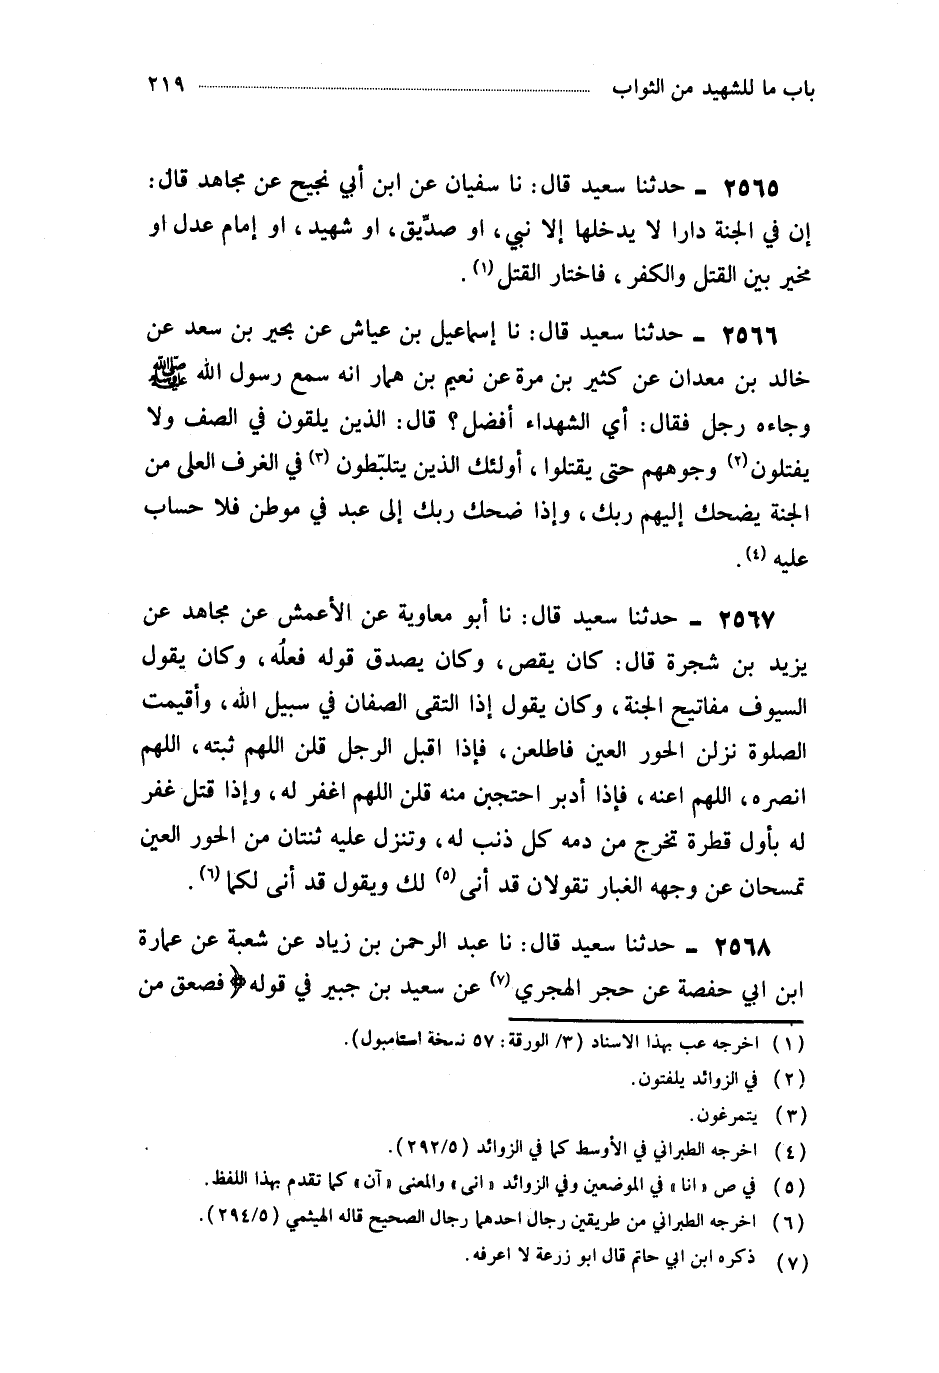 باب ما للشهيد من الثواب ٢١٩
٢٥٦٥ ـ حدثنا سعيد قال: نا سفيان عن ابن أبي نجيح عن مجاهد قال:
إن في الجنة دارا لا يدخلها إلا نبي، او صدِّيق، او شهيد، او إمام عدل او
مخير بين القتل والكفر، فاختار القتل(١).
٢٥٦٦ ـ حدثنا سعيد قال: نا إسماعيل بن عياش عن بحير بن سعد عن
خالد بن معدان عن كثير بن مرة عن نعيم بن همار انه سمع رسول الله ﷺ
وجاءه رجل فقال: أي الشهداء أفضل؟ قال: الذين يلقون في الصف ولا
يفتلون(٢) وجوههم حتى يقتلوا، أولئك الذين يتلبّطون(٣) في الغرف العلى من
الجنة يضحك إليهم ربك، وإذا ضحك ربك إلى عبد في موطن فلا حساب
عليه(٤).
٢٥٦٧ ـ حدثنا سعيد قال: نا أبو معاوية عن الأعمش عن مجاهد عن
يزيد بن شجرة قال: كان يقص، وكان يصدق قوله فعلُه، وكان يقول
السيوف مفاتيح الجنة، وكان يقول إذا التقى الصفان في سبيل الله، وأقيمت
الصلوة نزلن الحور العين فاطلعن، فإذا اقبل الرجل قلن اللهم ثبته، اللهم
انصره، اللهم اعنه، فإذا أدبر احتجبن منه قلن اللهم اغفر له، وإذا قتل غفر
له بأول قطرة تخرج من دمه كل ذنب له، وتنزل عليه ثنتان من الحور العين
تمسحان عن وجهه الغبار تقولان قد أنى(٥) لك ويقول قد أنى لكما(٦).
٢٥٦٨ ـ حدثنا سعيد قال: نا عبد الرحمن بن زياد عن شعبة عن عمارة
ابن ابي حفصة عن حجر الهجري(٧) عن سعيد بن جبير في قوله ﴿فصعق من
(١) اخرجه عب بهذا الاسناد (٣/ الورقة: ٥٧ نسخة استامبول).
(٢) في الزوائد يلفتون.
(٣) يتمرغون.
(٤) اخرجه الطبراني في الأوسط كما في الزوائد (٢٩٢/٥).
(٥) في ص «انا» في الموضعين وفي الزوائد «انى» والمعنى «آن» كما تقدم بهذا اللفظ.
(٦) اخرجه الطبراني من طريقين رجال احدهما رجال الصحيح قاله الهيثمي (٢٩٤/٥).
(٧) ذكره ابن ابي حاتم قال ابو زرعة لا اعرفه.